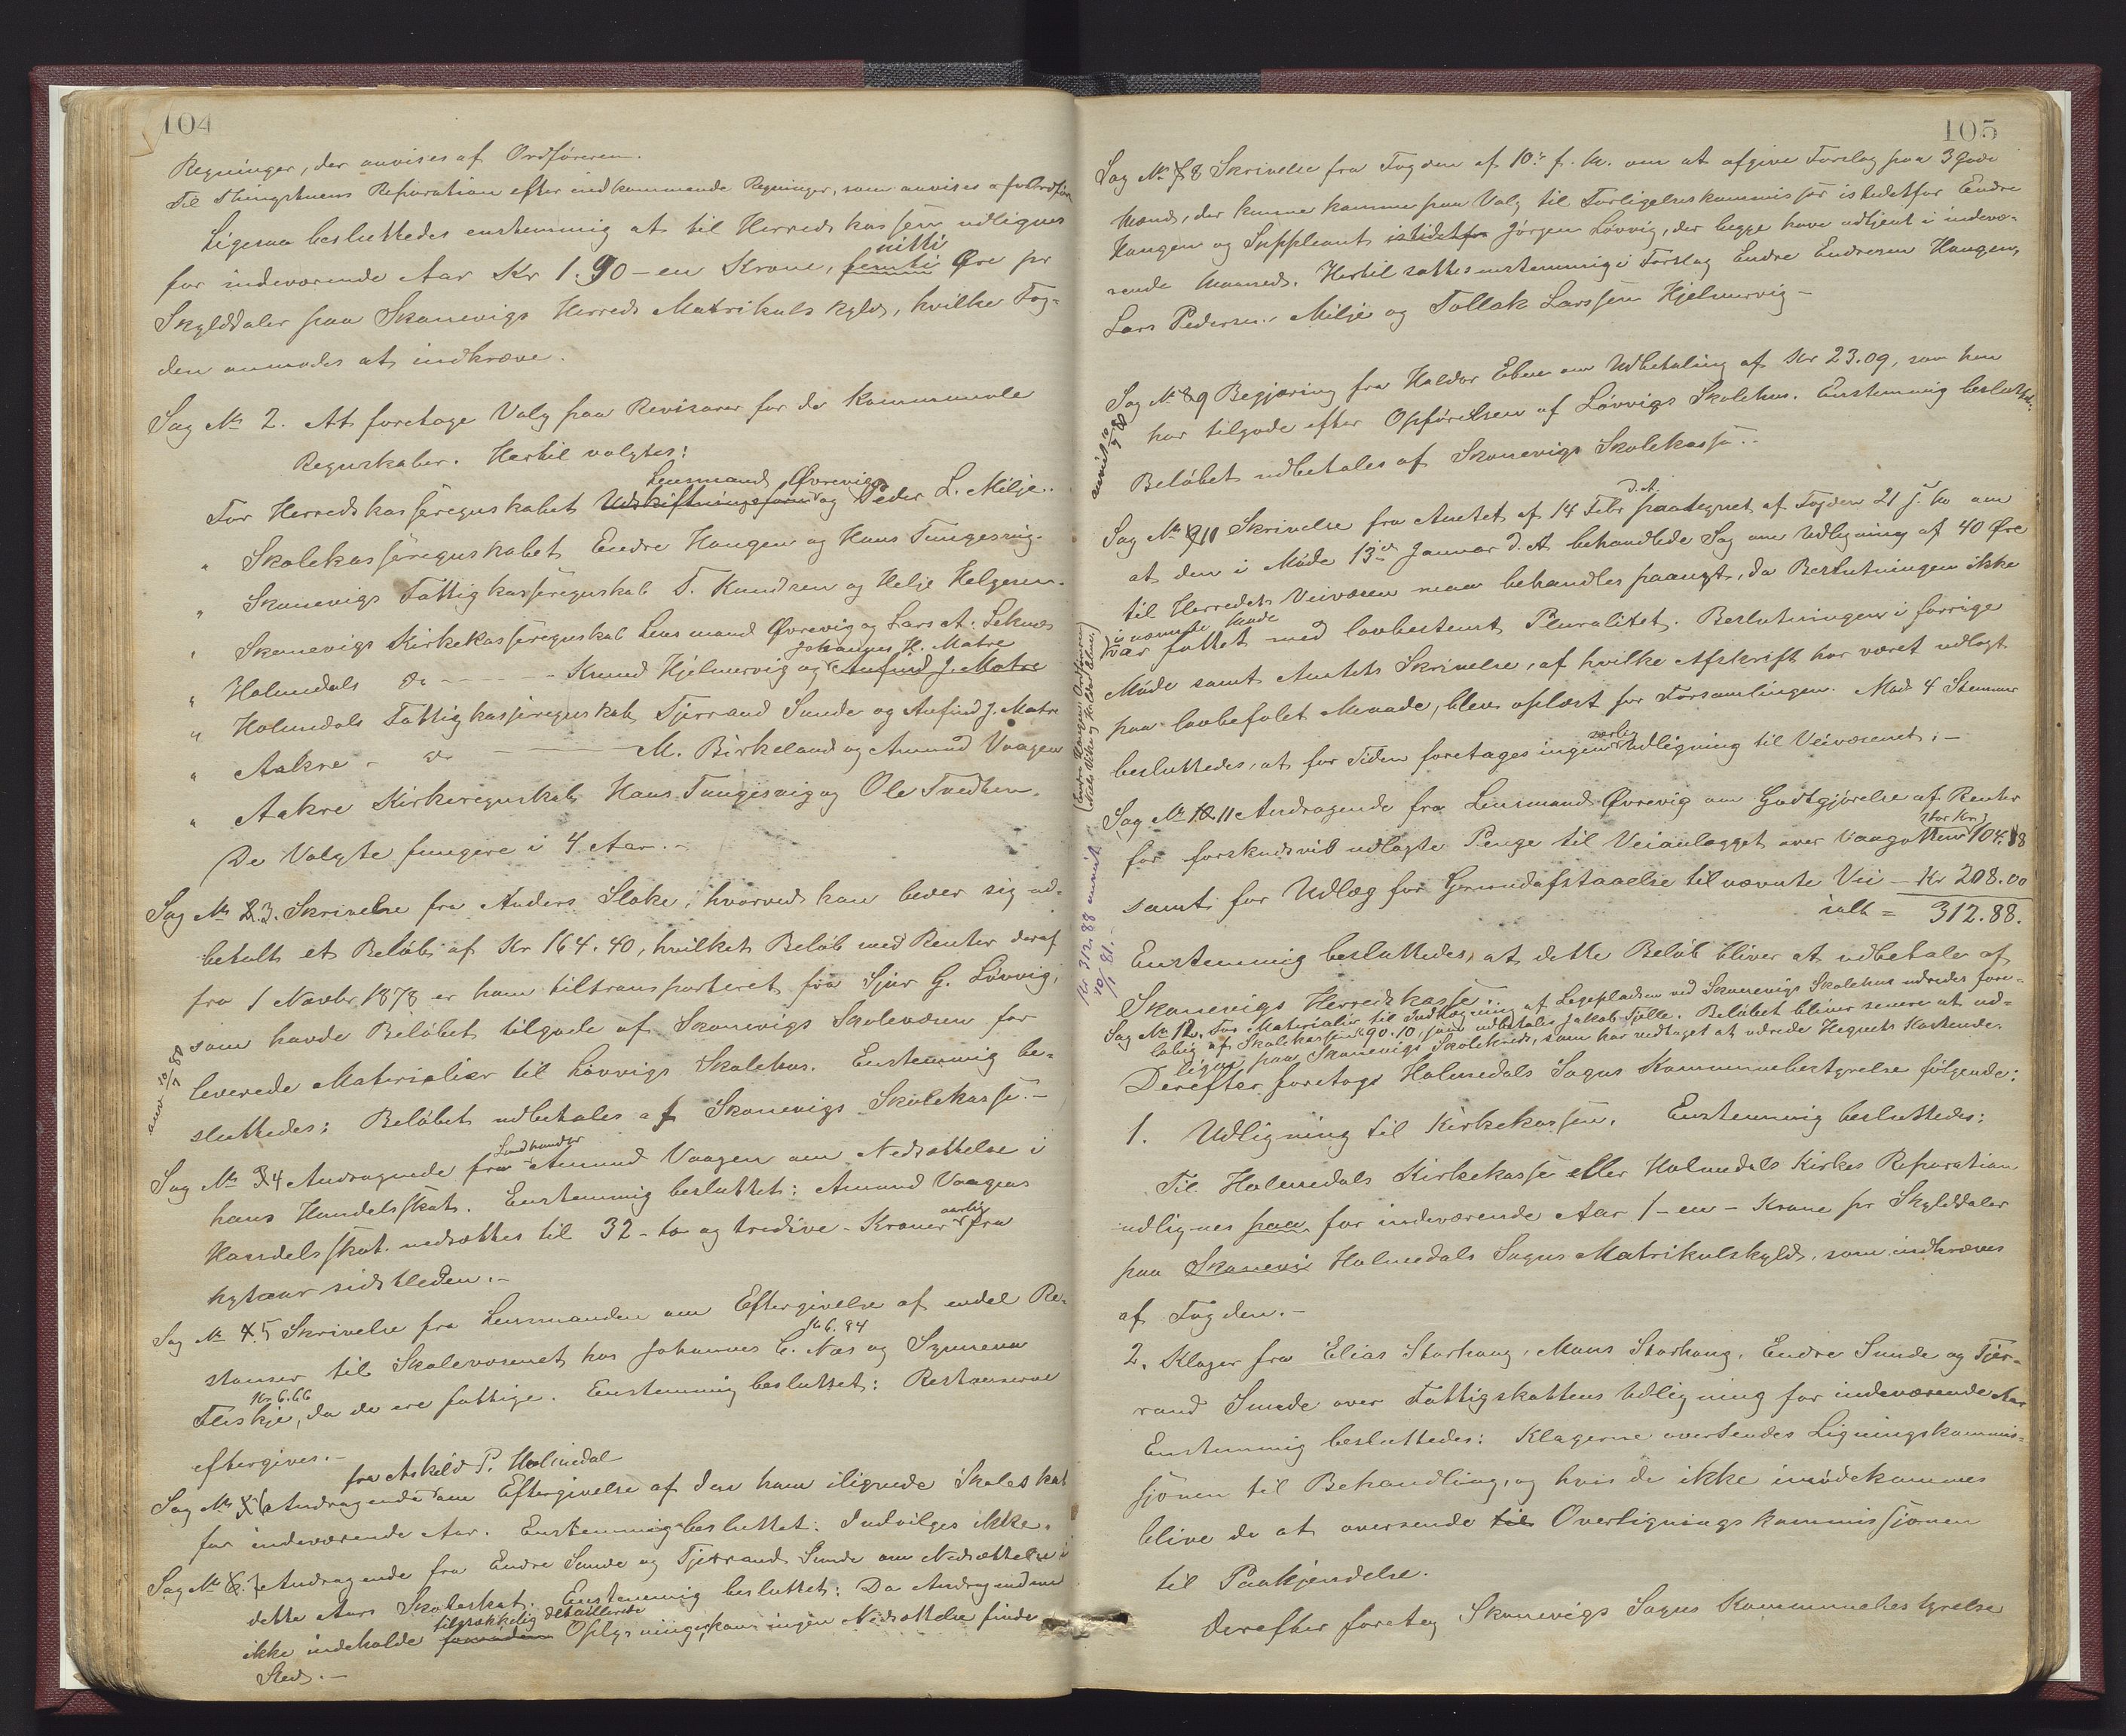 104
Regninger, der anvises af Ordføreren.
Til Thingstuens Reparation efter indkommende Regninger, som anvises af Ordfør
Ligesaa besluttedes enstemmig at til Herredskassen udlignes
nitti
for indeværende Aar Kr 1.90 - en Krone, femti Øre pr
Skylddaler paa Skonevigs Herreds Matrikulskyld, hvilke Fog-
den anmodes at indkræve.
Sag No 2. At foretage Valg paa Revisorer for de Kommunale
Regnskaber. Hertil valgtes:
Lensmand Øvrevig
For Herredskasseregnskabet Udskiftningsform og Peder L. Milje..
" Skolekasseregnskabet Endre Haugen og Hans Tungesvig.
" Skonevigs Fattigkasseregnskab T. Knudsen og Helje Helgesen.
" Skonevigs Kirkekasseregnskab Lensmand Øvrevig og Lars A. Leknes
Johannes H. Matre
" Holmedals do - - - - Knud Hjelmervig og Anfind J. Matre
" Holmedals Fattigkasseregnskab Tjerrand Sunde og Anfind J. Matre
" Aakre - do - - - M. Birkeland og Amund Vaagen
" Aakre Kirkeregnskab Hans Tungesvig og Ole Tvedten.
De Valgte fungere i 4 Aar.-
Sag No 2.3. Skrivelse fra Anders Sloke, hvorved han beder sig ud-
betalt et Beløb af Kr 164.40, hvilket Beløb med Renter deraf
fra 1 Novbr. 1878 er ham tiltransporteret fra Sjur G. Løvvig,
som havde Beløbet tilgode af Skonevigs Skolevæsen for
leverede Materialier til Løvvigs Skolehus. Enstemmig be-
sluttedes: Beløbet udbetales af Skonevigs Skolekasse.-
anv 10/7 80
Landhandler
Sag No 34 Andragende fra Amund Vaagen om Nedsættelse i
hans Handelsskat. Enstemmig besluttet: Amund Vaagens
aarlig
Handelsskat nedsættes til 32 - to og tredive - Kroner fra
Nytaar sidstleden.-
Sag No 4.5 Skrivelse fra Lensmanden om Eftergivelse af endel Re-
Kr 6.94
stanser til Skolevæsenet hos Johannes C. Næs og Synneva
Kr 6.66
Fliskje, da de ere fattige. Enstemmig besluttet: Restanserne
eftergives.-
fra Askild P. Holmedal
Sag No 5.6 Andragende om Eftergivelse af den ham ilignede Skoleskat
for indeværende Aar. Enstemmig besluttet: Indvilges ikke.
Sag No 6.7 Andragende fra Endre Sunde og Tjerrand Sunde om Nedsættelse i
dette Aars Skoleskat. Enstemmig besluttet: Da Andragendene
tilstrækkelig detaillerede
ikke indeholde Oplysninger, kan ingen Nedsættelse finde
Sted.-
105
Sag No 78 Skrivelse fra Fogden af 10de f. M. om at afgive Forslag paa 3 gode
Mænd, der kunne komme paa Valg til Forligelseskommissær istedetfor Endre
Haugen og Suppleant istedetfor Jørgen Løvvig, der begge have udtjent i indevæ-
rende Maaned. Hertil sattes enstemmig i Forslag Endre Endresen Haugen,
Lars Pedersen Milje og Tollak Larssen Hjelmervig -
Sag No 89 Begjæring fra Haldor Ebne om Udbetaling af Kr 23.09, som han
har tilgode efter Opførelsen af Løvvigs Skolehus. Enstemmig besluttet:
Beløbet udbetales af Skonevigs Skolekasse..
anvist 10/7 80
d. A.
Sag No 910 Skrivelse fra Amtet af 14 Febr paategnet af Fogden 21 s. M. om
at den i Møde 13de Januar d. A. behandlede Sag om Udligning af 40 Øre
til Herredets Veivæsen maa behandles paanyt, da Beslutningen ikke
i nævnte Møde
var fattet med lovbestemt Pluralitet. Beslutningen i forrige
Møde samt Amtets Skrivelse, af hvilke Afskrift har været udlagt
paa lovbefalet Maade, blev oplæst for Forsamlingen. Mod 4 Stemmer
(Endre Haugen, Ordføreren,
Nils Vikje og Haldor Ebne)
særlig
besluttedes, at for Tiden foretages ingen Udligning til Veivæsenet.-
Sag No 10.11 Andragende fra Lensmand Øvrevig om Godtgjørelse af Renter
stor Kr
for forskudsvis udlagte Penge til Veianlægget over Vaage 104.88
samt for Udlæg for Grundafstaaelse til nævnte Vei - Kr 208.00
ialt = 312.88.
Enstemmig besluttedes, at dette Beløb bliver at udbetale af
Skonevigs Herredskasse..
Kr 312.88 anvist 10/1 81.-
Sag No 12. For Materialier til Indhegning af Legepladsen ved Skonevigs Skolehus udredes fore-
løbig af Skolekassen Kr 90.10, som udbetales Jakob Fjelle. Beløbet bliver senere at ud-
ligne paa Skonevigs Skolekreds, som har vedtaget at udrede Hegnets Kostende.
Derefter foretoges Holmedals Sogns Kommunebestyrelse følgende:
1. Udligning til Kirkekassen. Enstemmig besluttedes:
Til Holmedals Kirkekasse eller Holmedals Kirkes Reparation
udlignes paa for indeværende Aar 1 - en - Krone pr Skylddaler
paa Skonevi Holmedals Sogns Matrikulskyld, som indkræves
af Fogden.-
2. Klager fra Elias Storhaug, Mons Storhaug, Endre Sunde og Tjer-
rand Sunde over Fattigskattens Udligning for indeværende Aar
Enstemmig besluttedes: Klagerne oversendes Ligningskommis-
sjonen til Behandling, og hvis de ikke imødekommes
blive de at oversende til Overligningskommissjonen
til Paakjendelse.
Derefter foretog Skonevigs Sogns Kommunebestyrelse